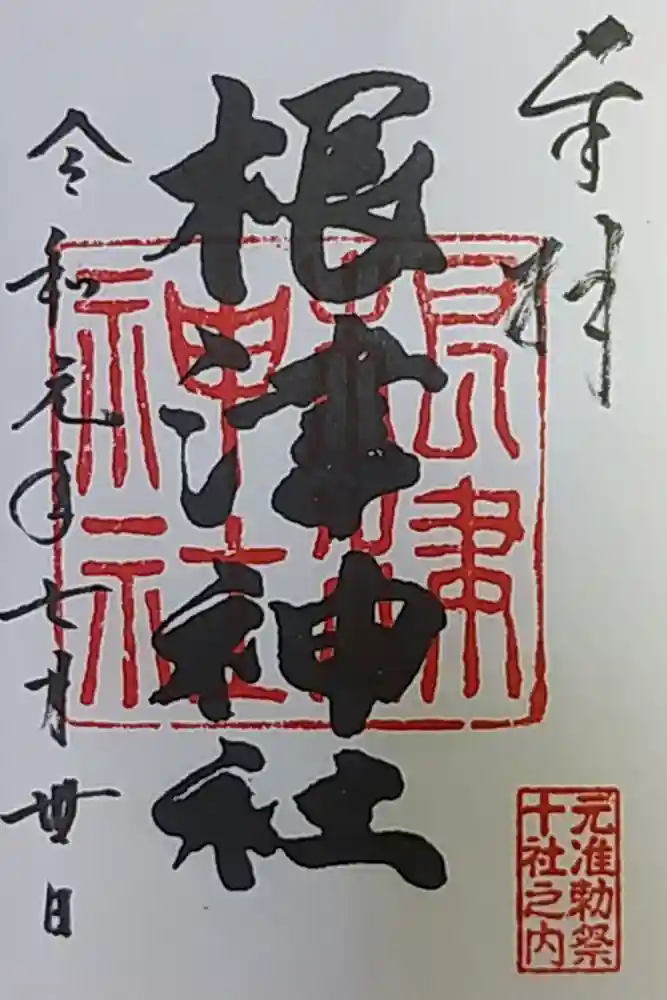 奉拝
根津神社
根津
神社
令和元年七月丗日
元准勅祭
十社之内